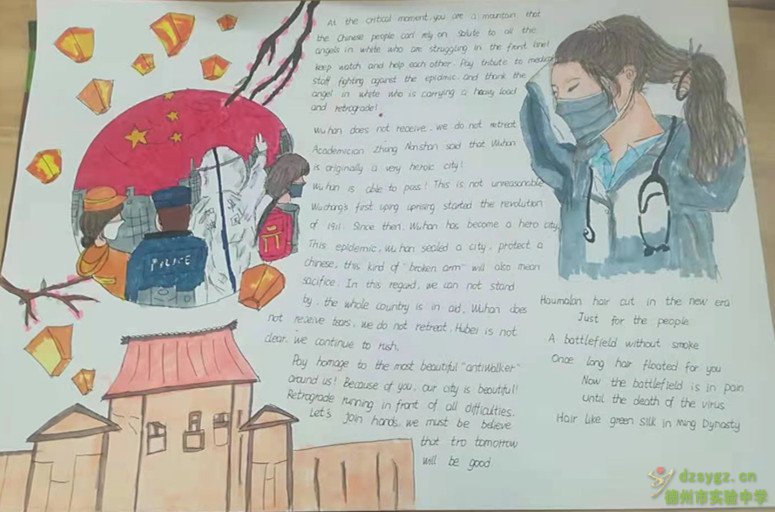 At the critical moment, you are a mountain that
the Chinese people can rely on. Salute to all the
angels in white who are struggling in the front line!
keep watch and help each other. Pay tribute to medical
staff fighting against the epidmic. and thank the
angel in white who is carrying a heavy load
and retrograde!
Wuhan does not receive, we do not retreat
Academician Zhong Nanshan said that Wuhan
is originally a very heroic city!
Wuhan is able to pass! This is not unreasonable
Wuchang's first uping uprising started the revolution
of 1911. Since then, Wuhan has become a hero city
This epidemic, Wuhan sealed a city, protect a
chinese, this kind of "broken arm" will also mean
sacrifice. In this regard, we can not stand
by, the whole country is in aid, Wuhan does
not receive tears, we do not retreat, Hubei is not
clear, we continue to rush.
Pay homage to the most beautiful "antiwalker"
around us! Because of you, our city is beautiful!
Retrograde running in front of all difficulties.
Let's join hands, we must be believe
that tro tomorrow
will be good
POLICE
Haumalan hair cut in the new era
Just for the people
A battlefield without smoke
Once long hair floated for you
Now the battlefield is in pain
until the death of the virus
Hair like green silk in Ming Dynasty
dzsygz.cn
德州市实验中学